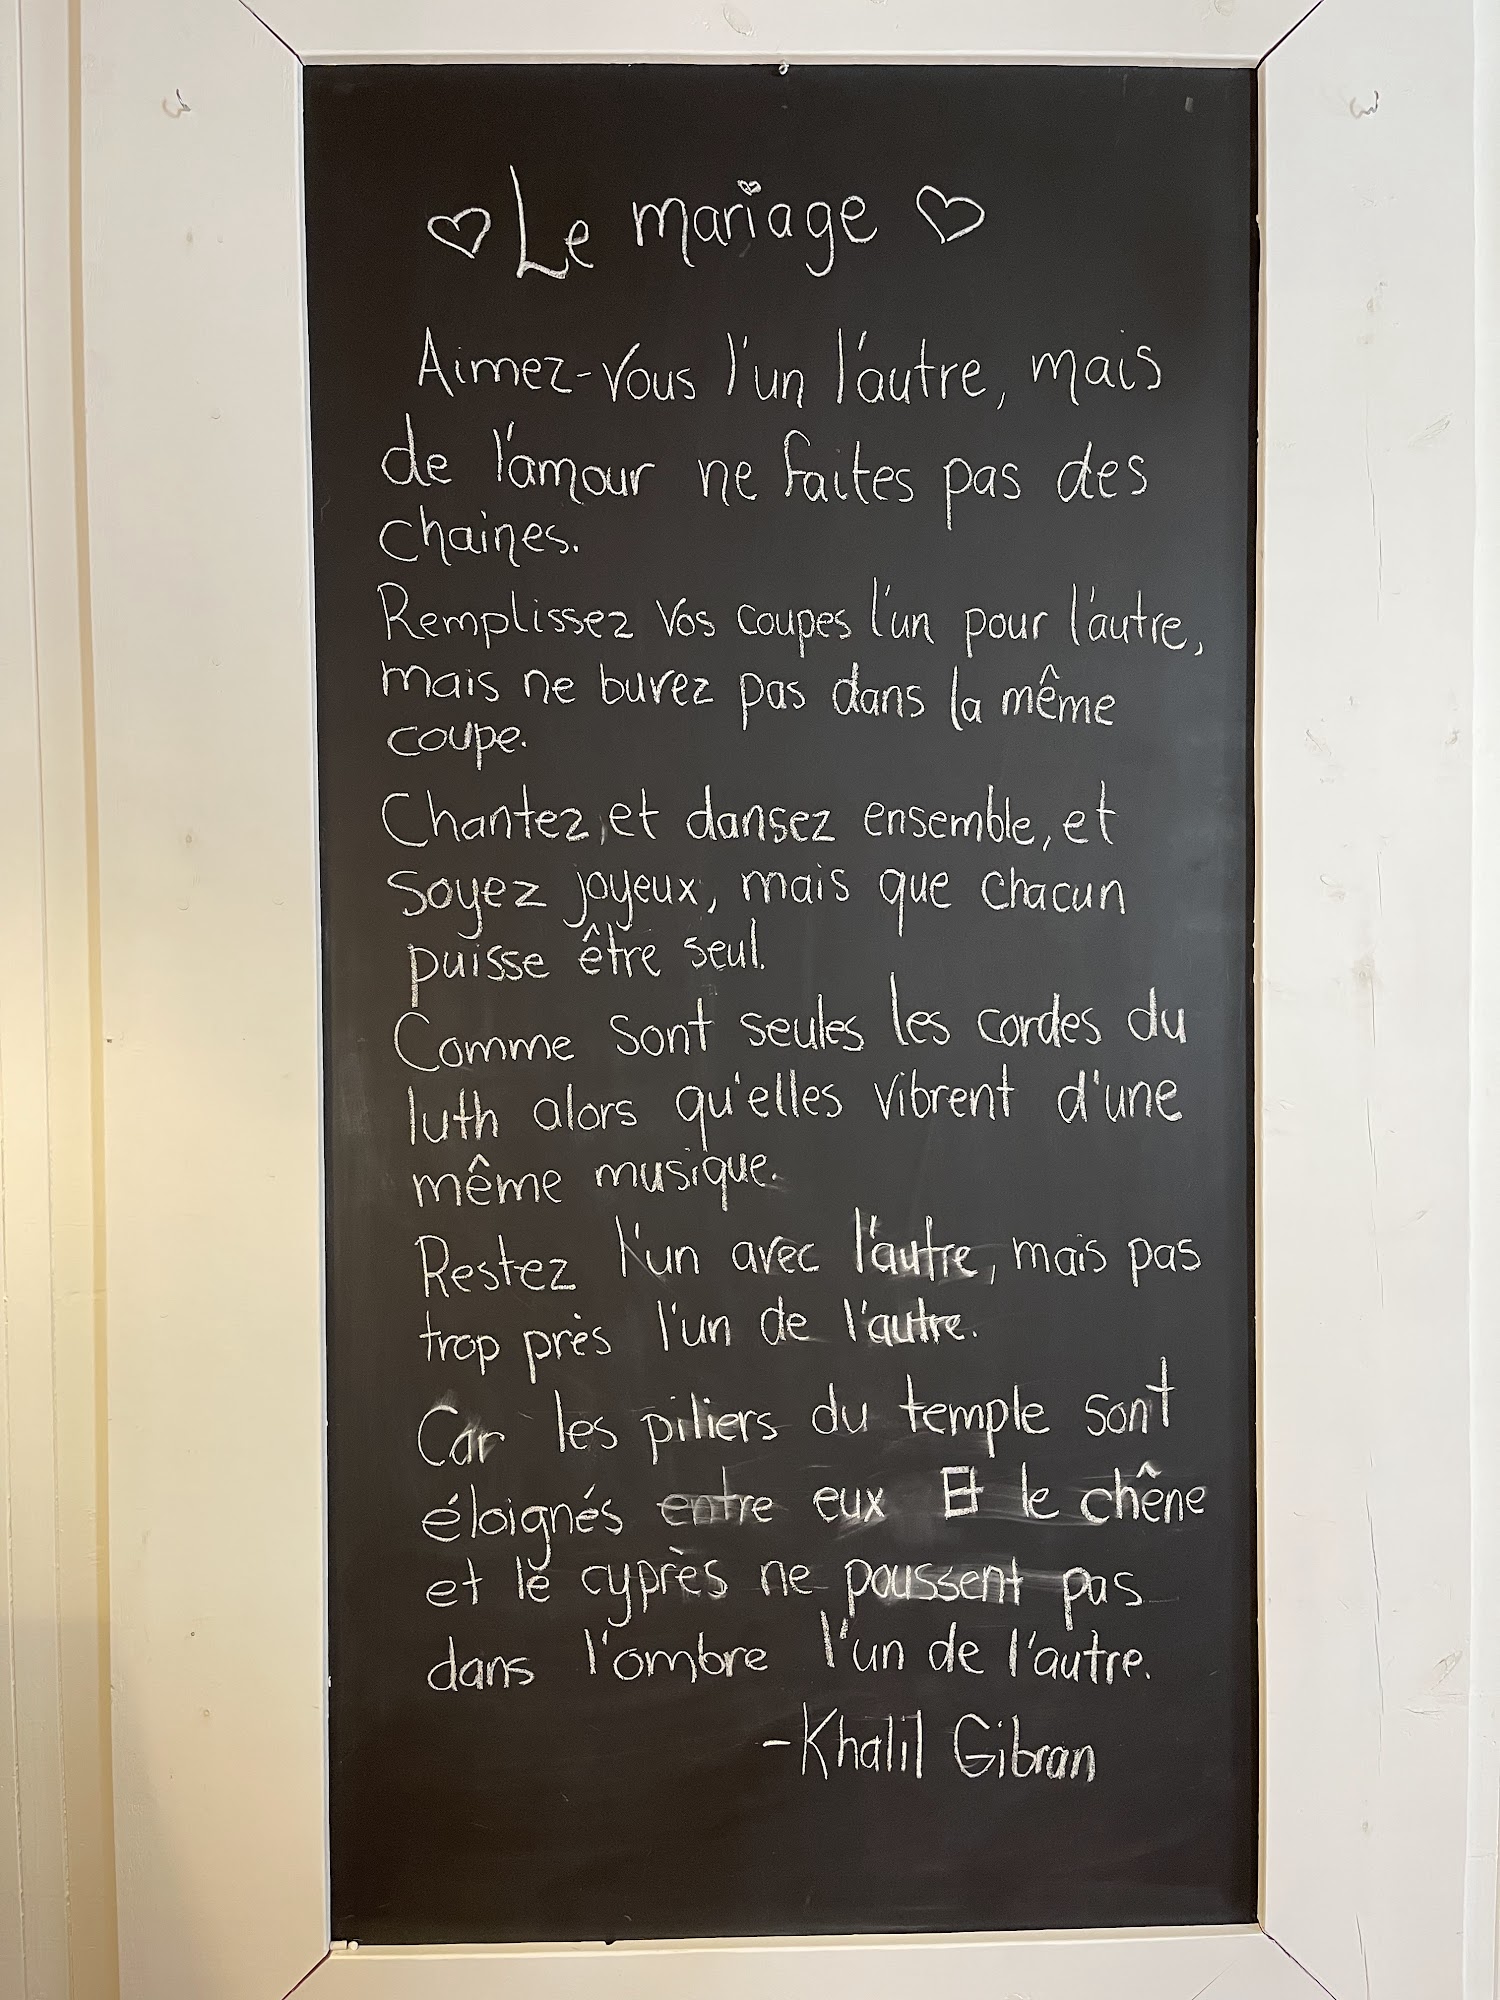 ♡ Le mariage ♡
Aimez-vous l'un l'autre, mais
de l'amour ne faites pas des
chaines.
Remplissez vos coupes l'un pour l'autre,
mais ne buvez pas dans la même
coupe.
Chantez, et dansez ensemble, et
soyez joyeux, mais que chacun
puisse être seul.
Comme sont seules les cordes du
luth alors qu'elles vibrent d'une
même musique.
Restez l'un avec l'autre, mais pas
trop près l'un de l'autre.
Car les piliers du temple sont
éloignés entre eux Et le chêne
et le cyprès ne poussent pas
dans l'ombre l'un de l'autre.
-Khalil Gibran